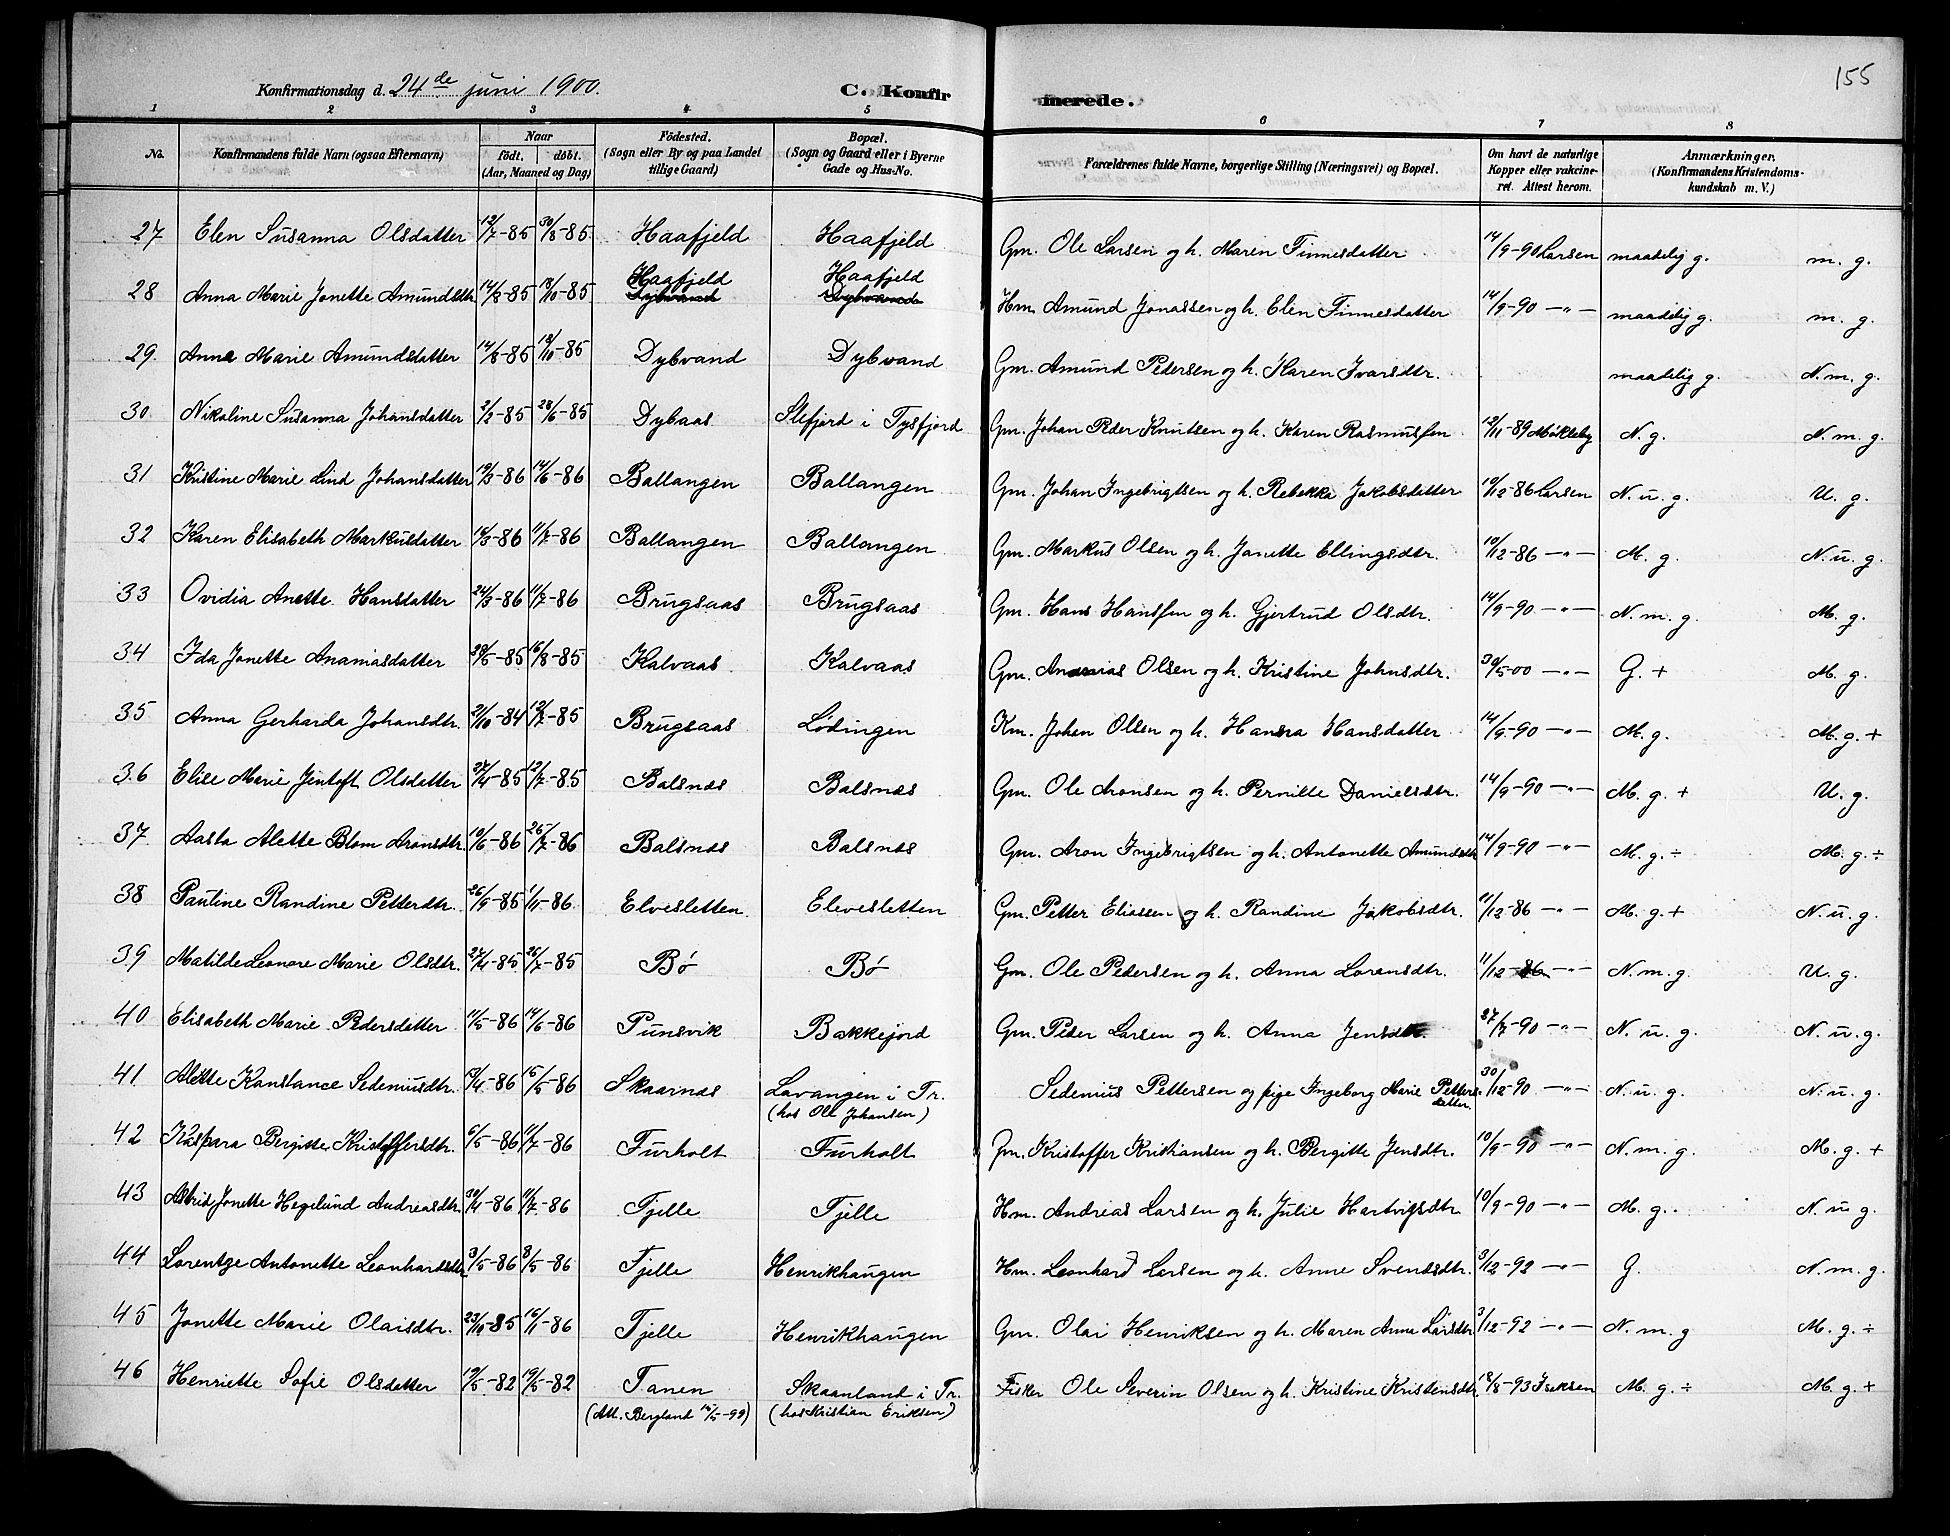 155
Konfirmationsdag d. 24de juni 1900. C. Konfirmerede.
1 2 3 4 5 6 7 8
No. Konfirmandens fulde Navn (ogsaa Efternavn) Naar født. døbt. (Aar, Maaned og Dag) Fødested. (Sogn eller By og paa Landet tillige Gaard) Bopæl. (Sogn og Gaard eller i Byerne Gade og Hus-No. Forældrenes fulde Navne, borgerlige Stilling (Næringsvei) og Bopæl. Om havt de naturlige Kopper eller vakcineret. Attest herom. Anmærkninger. (Konfirmandens Kristendomskundskab m. V.)
27 Elen Susanna Olsdatter 12/7-85 30/8-85 Haafjeld Haafjeld Gm. Ole Larsen og h. Maren Finnesdatter 14/9-90 Larsen maadelig g. m. g.
28 Anna Marie Jonette Amundsdtr 14/8-85 18/10-85 Haafjeld Dybvand Haafjeld Dybvand Hm. Amund Jonassen og h. Elen Finnesdatter 14/9-90 -"- maadelig g. m. g.
29. Anna Marie Amundsdatter 14/8-85 18/10-85 Dybvand Dybvand Gm. Amund Pedersen og h. Karen Ivarsdtr. maadelig g. N. m. g.
30 Nikoline Susanna Johansdatter 2/2-85 28/6-85 Dybaas Slefjord i Tysfjord Gm. Johan Peder Knutsen og h. Karen Rasmussen 12/11-89 Møkleby N. g. N. m. g.
31 Kristine Marie Lind Johansdatter 19/3-86 14/6-86 Ballangen Ballangen Gm. Johan Ingebrigtsen og h. Rebekka Jakobsdatter 10/12-86 Larsen N. u. g. U. g.
32 Karen Elisabeth Markusdatter 14/3-86 11/7-86 Ballangen Ballangen Gm. Markus Olsen og h. Janette Ellingsdtr. 10/12-86 -"- M. g. N. u. g.
33 Ovidia Anette Hansdatter 24/3-86 11/7-86 Brugsaas Brugsaas Gm. Hans Hanssen og h. Gjertrud Olsdtr. 14/9-90 -"- N. m. g. M. g.
34 Ida Jonette Ananiasdatter 16/8-85 Kalvaas Kalvaas Gm. Ananias Olsen og h. Kristine Johnsdtr. 30/5-00 -"- G. + M. g.
35 Anna Gerharda Johansdtr. 21/10-84 12/7-85 Brugsaas Lødingen Km. Johan Olsen og h. Hansa Hansdatter 14/9-90 -"- M. g. M. g. +
36 Elise Marie Jentoft Olsdatter 27/4-85 12/7-85 Balsnæs Balsnæs Gm. Ole Aronsen og h. Pernille Danielsdtr. 14/9-90 -"- M. g. + U. g.
37 Aasta Alette Blom Aronsdtr. 10/6-86 25/7-86 Balsnæs Balsnæs Gm. Aron Ingebrigtsen og h. Antonette Amundsdtr 14/9-90 -"- M. g. ÷ M. g. ÷
38 Pauline Randine Petterdtr. 26/9-85 1/11-86 Elvesletten Elevesletten Gm. Petter Eliassen og h. Randine Jakobsdtr. 11/12-86 -"- M. g. + N. u. g.
39 Matilde Leonore Marie Olsdtr. 27/4-85 26/7-85 Bø Bø Gm. Ole Pedersen og h. Anna Lorensdtr. 11/12-86 -"- N. m. g. U. g.
40 Elisabeth Marie Pedersdatter 11/5-86 14/6-86 Punsvik Bakkejord Gm. Peder Larsen og h. Anna Jensdtr. 27/7-90 -"- N. u. g. N. u. g.
41 Alette Konstance Sedeniusdtr. 15/5-86 Skaarnæs Lavangen i Tr. Sedenius Pettersen og pige Ingeborg Marie Pettersdatter 30/12-90 -"- N. u. g. N. u. g.
(hos Ole Johansen)
42 Kaspara Bergitte Kristoffersdtr. 6/5-86 11/7-86 Furholt Furholt Gm. Kristoffer Kristiansen og h. Bergitte Jensdtr. 10/9-90 -"- N. m. g. M. g. +
43 Astrid Jonette Hegelund Andreasdtr. 30/4-86 11/7-86 Fjelle Fjelle Hm. Andreas Larsen og h. Julie Hartvigsdtr. 10/9-90 -"- M. g. N. u. g.
44 Lorentze Antonette Leonhardsdtr. 3/5-86 8/5-86 Fjelle Henrikhaugen Hm. Leonhard Larsen og h. Anne Svendsdtr. 3/12-92 -"- G. N. m. g.
45 Jonette Marie Olaisdtr. 23/10-85 16/1-86 Fjelle Henrikhaugen Gm. Olai Henriksen og h. Maren Anna Larsdtr. 3/12-92 -"- N. m. g M. g. ÷
46 Henriette Sofie Olsdatter 19/5-82 19/5-82 Tanen Skaanland i Tr. Fisker Ole Severin Olsen og h. Kristine Kristensdtr. 18/8-93 Isaksen M. g. ÷ M. g. +
(Att. Bergland 14/5-99) (hos Kristian Eriksen)